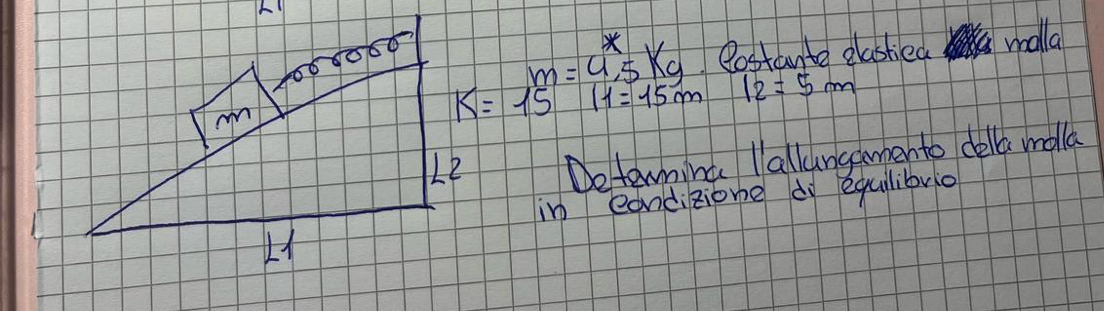 L1
m
*
m = 4,5 Kg. Costante elastica molla
K = 15 l1 = 15 m l2 = 5 m
L2
Determina l'allungamento della molla
in condizione di equilibrio
L1